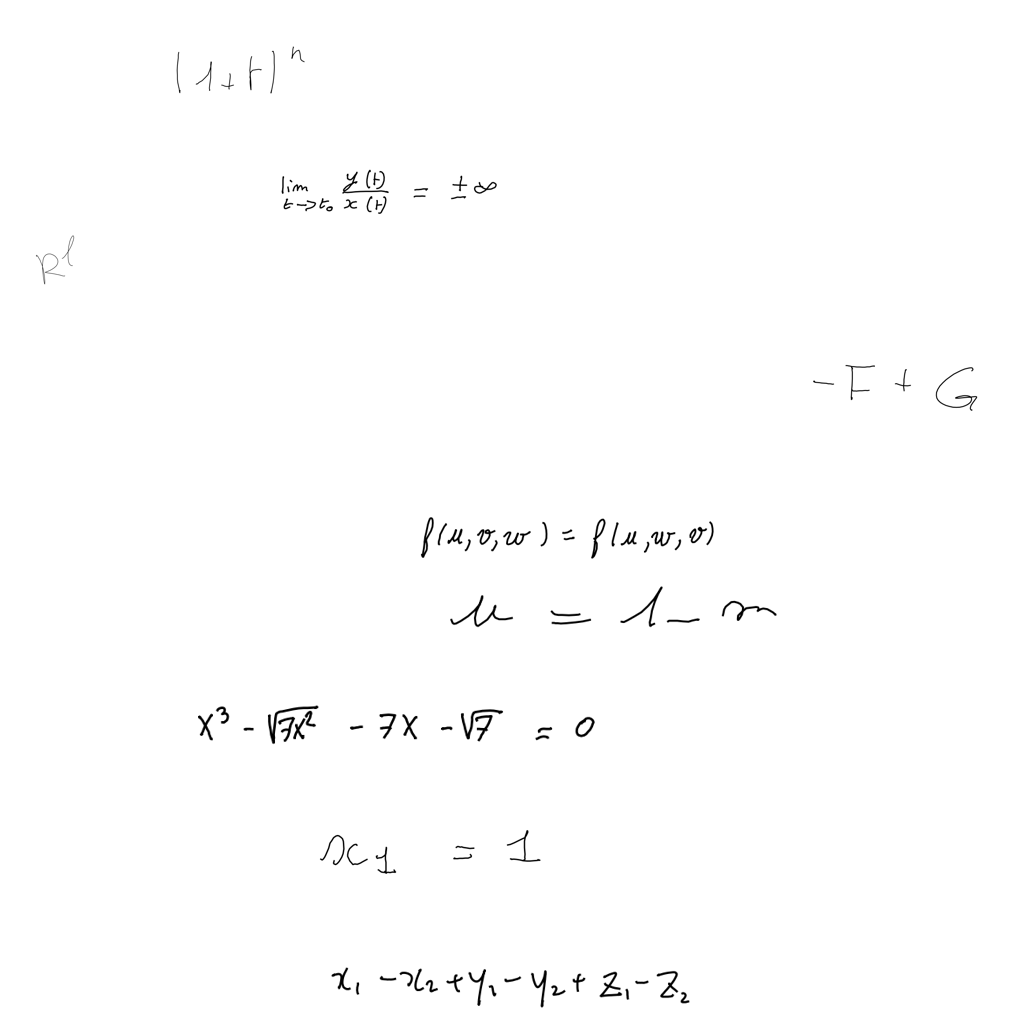 (1+t)^n
lim_{t→t_0} y(t)/x(t) = ±∞
R^l
-F + G
f(u,v,w) = f(u,w,v)
u = l - m
x^3 - √(7x^2) - 7x - √7 = 0
x_1 = 1
x_1 - x_2 + y_1 - y_2 + z_1 - z_2